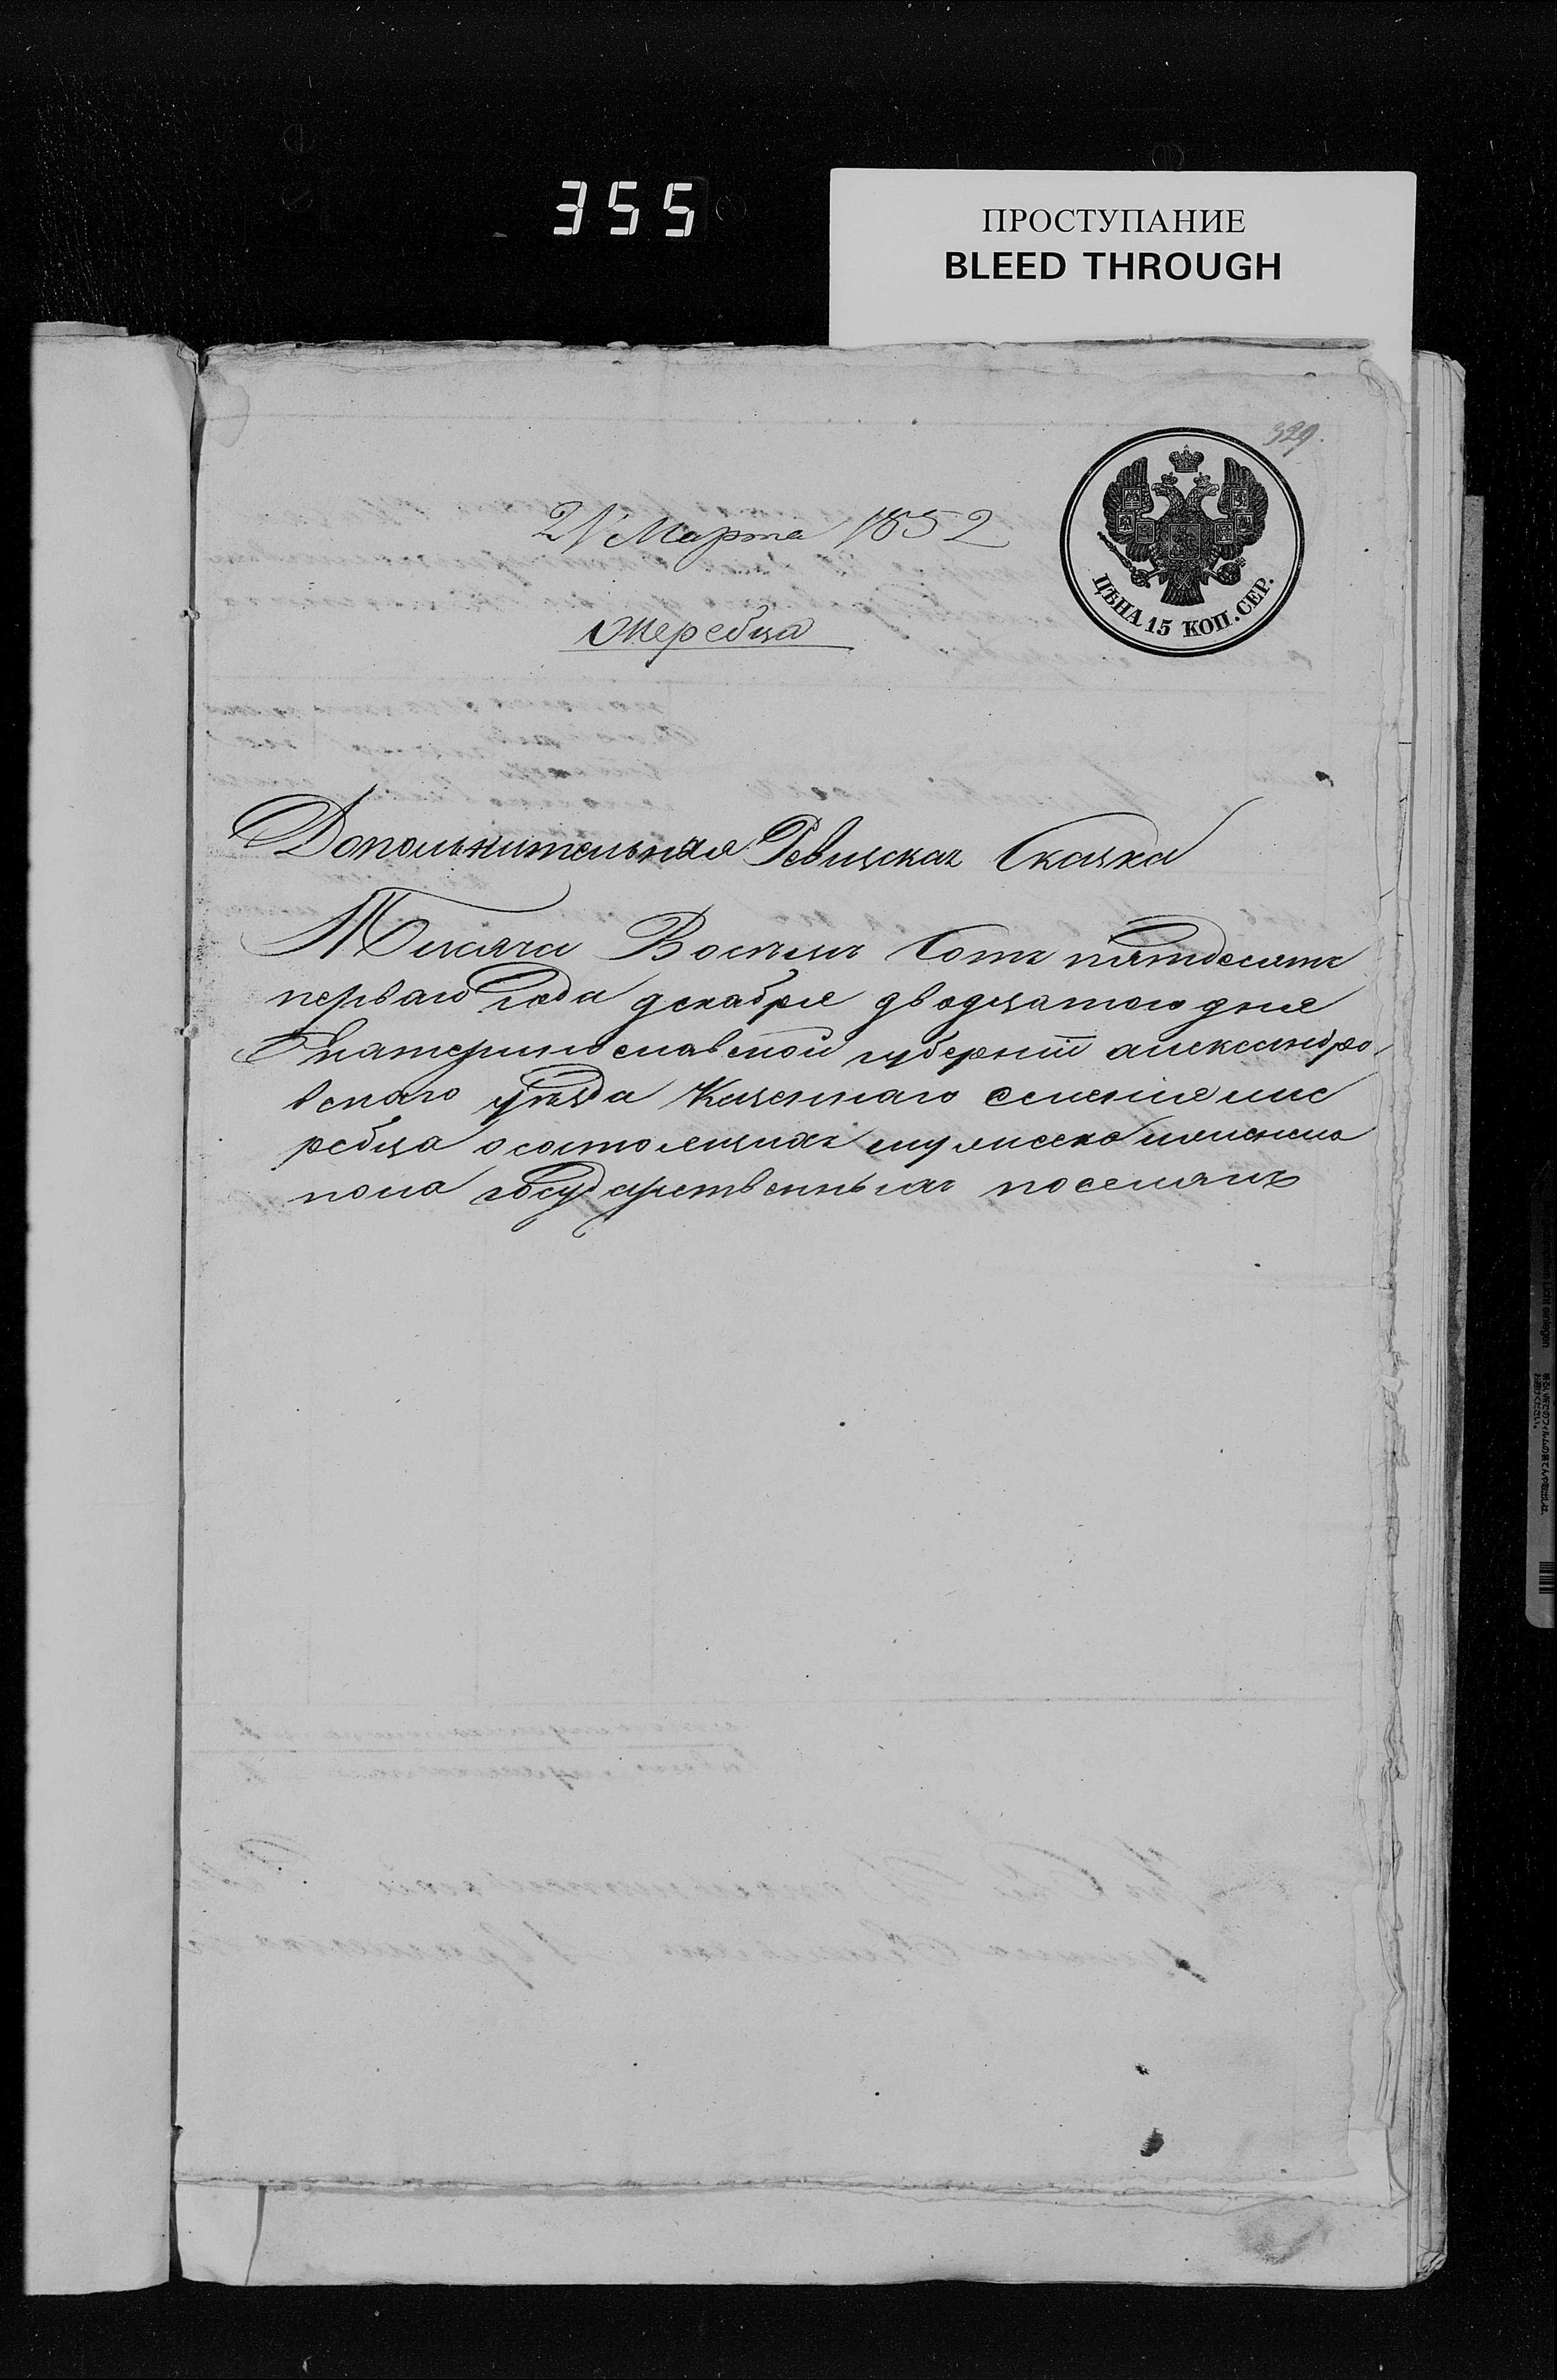 355
ПРОСТУПАНИЕ
BLEED THROUGH
329.
21 Марта 1852
Жеребца
ЦѢНА 15 КОП. СЕР.
Дополнительная Ревизская Сказка
Тысяча Восемь Сотъ пятдесятъ
перваго года декабря двадцатого дня
Екатеринославской губернiи александро
вского уѣзда Казеннаго селенiя же
ребца о состоящихъ мужеска
пола государственныхъ поселянъ